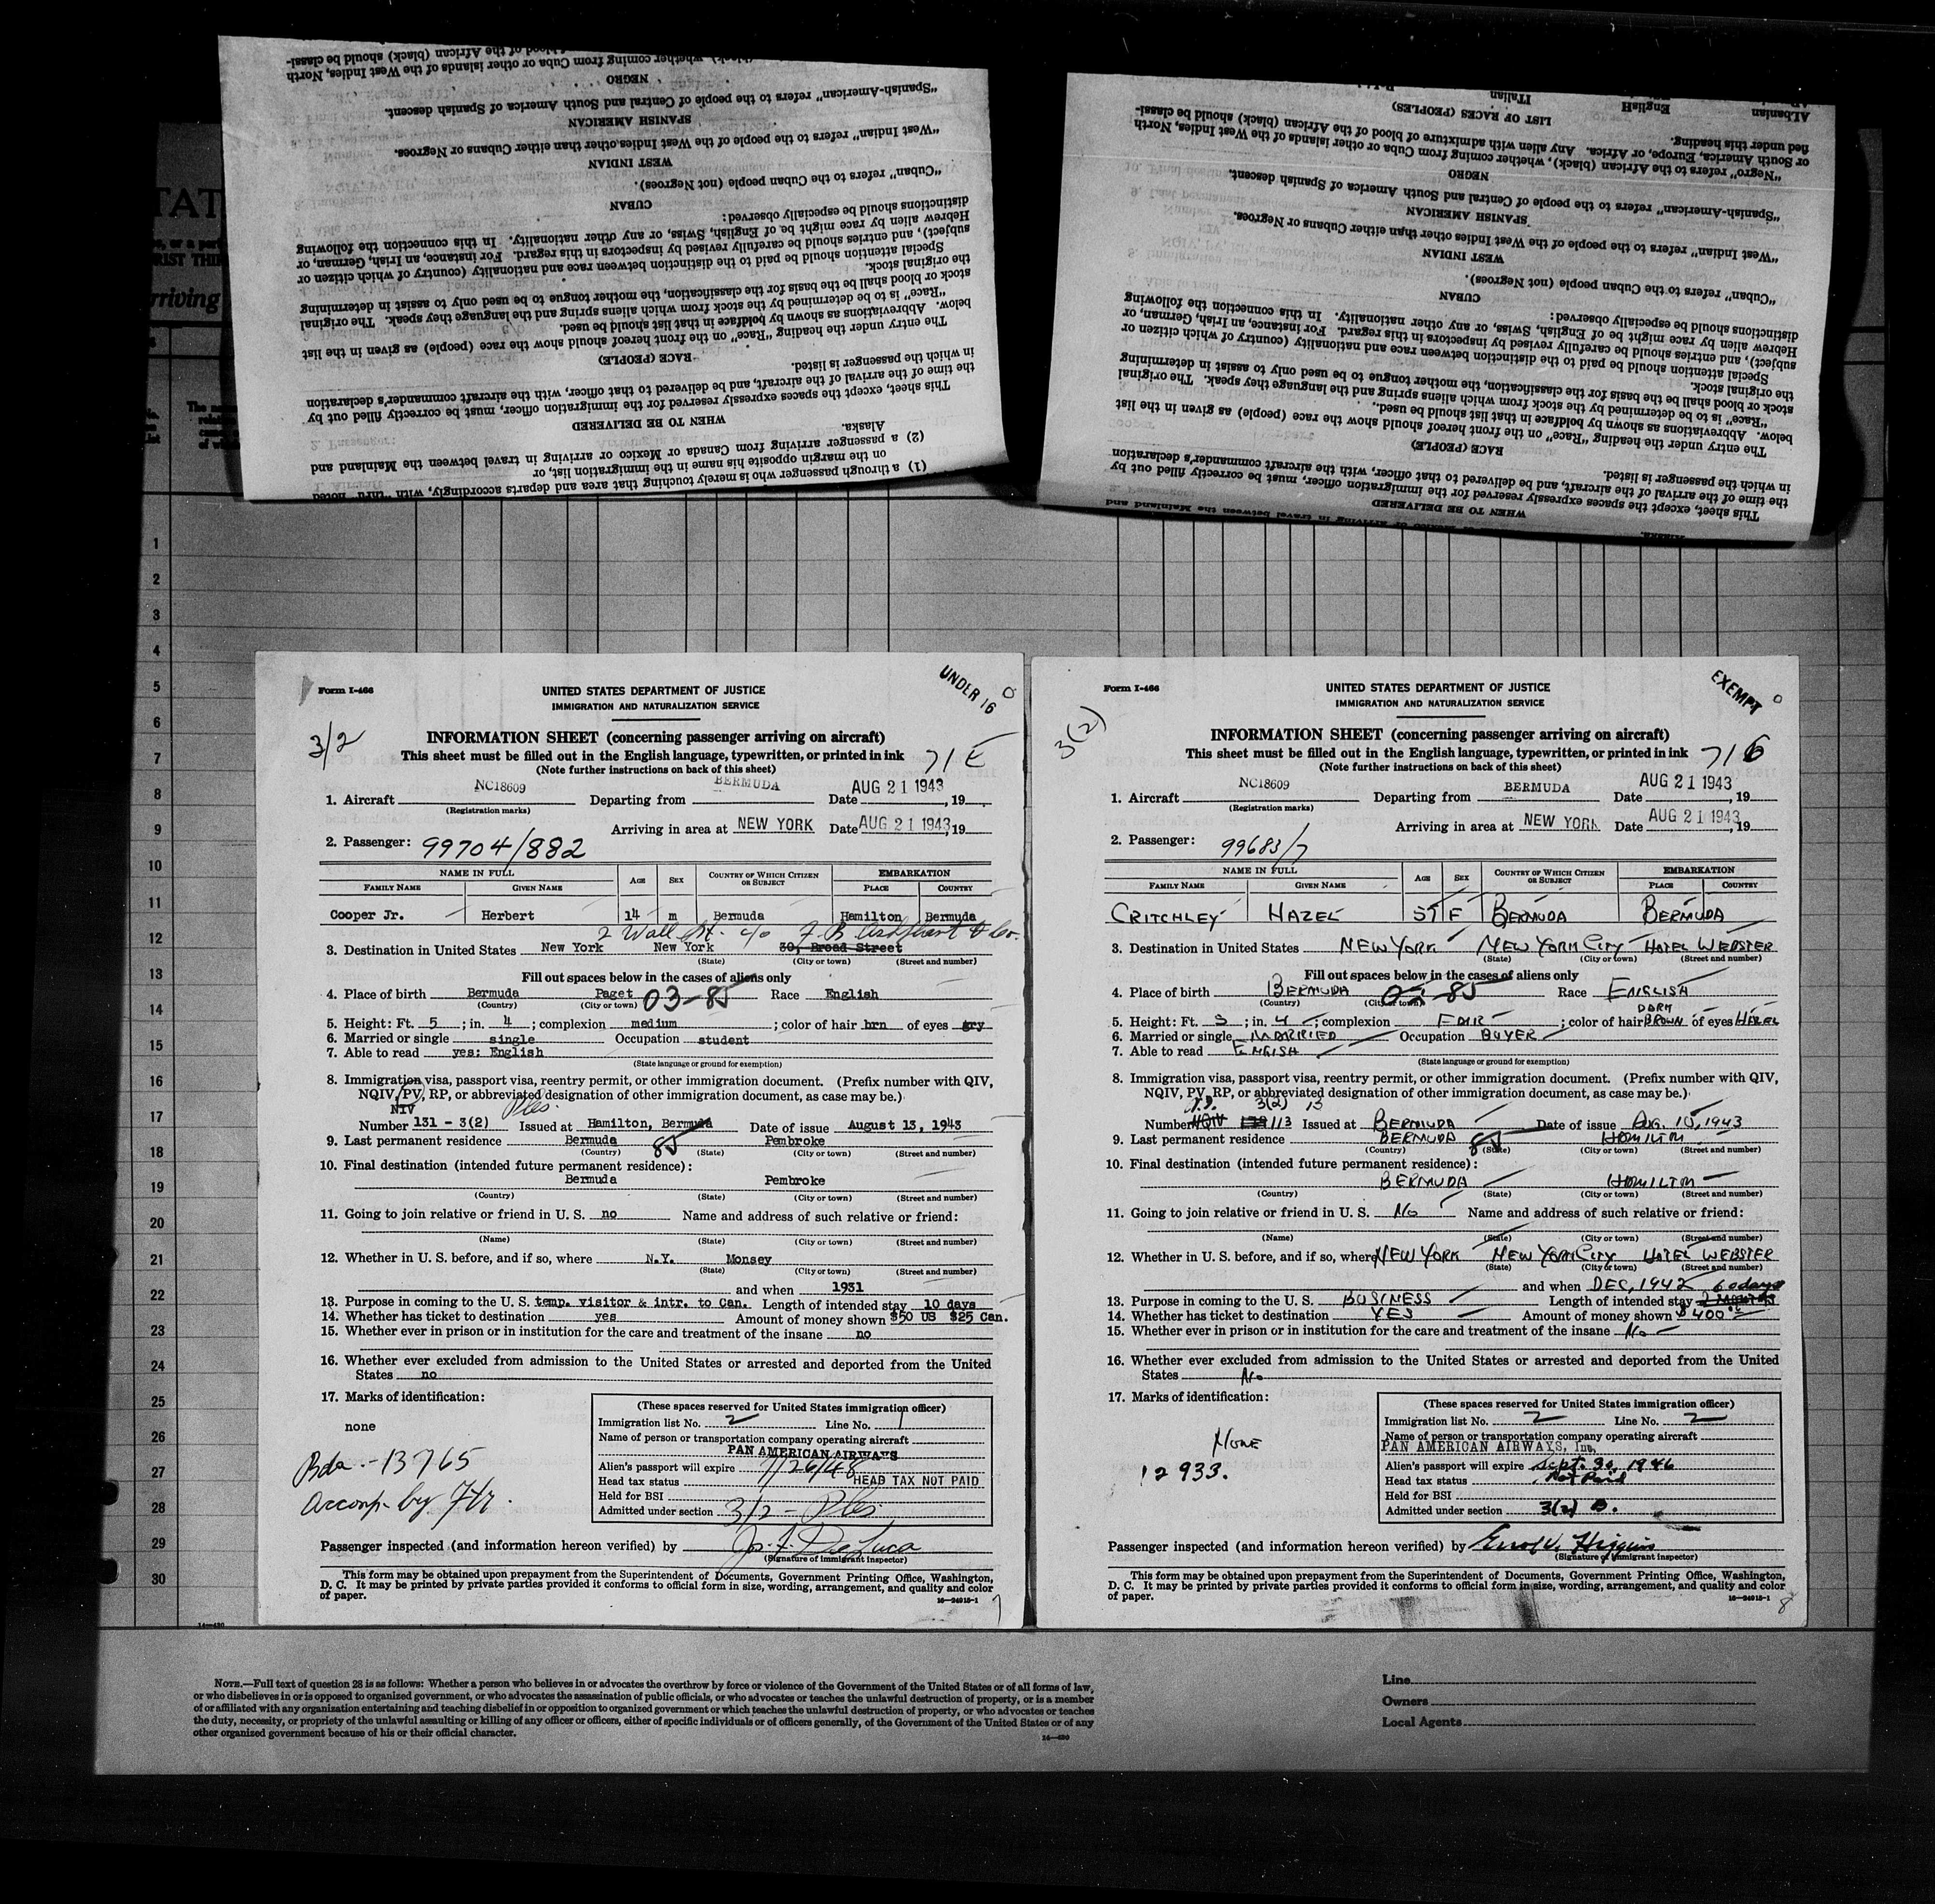 of blood of the African (black) should be classi-
(black), whether coming from Cuba or other islands of the West Indies, North
NEGRO
"Spanish-American" refers to the people of Central and South America of Spanish descent.
SPANISH AMERICAN
"West Indian" refers to the people of the West Indies other than either Cubans or Negroes.
WEST INDIAN
"Cuban" refers to the Cuban people (not Negroes).
CUBAN
distinctions should be especially observed:
Hebrew alien by race might be of English, Swiss, or any other nationality. In this connection the following
subject), and entries should be carefully revised by inspectors in this regard. For instance, an Irish, German, or
Special attention should be paid to the distinction between race and nationality (country of which citizen or
the original stock.
stock or blood shall be the basis for the classification, the mother tongue to be used only to assist in determining
"Race" is to be determined by the stock from which aliens spring and the language they speak. The original
below. Abbreviations as shown by boldface in that list should be used.
The entry under the heading "Race" on the front hereof should show the race (people) as given in the list
RACE (PEOPLE)
in which the passenger is listed.
the time of the arrival of the aircraft, and be delivered to that officer, with the aircraft commander's declaration
This sheet, except the spaces expressly reserved for the immigration officer, must be correctly filled out by
WHEN TO BE DELIVERED
Alaska.
(2) a passenger arriving from Canada or Mexico or arriving in travel between the Mainland and
on the margin opposite his name in the immigration list, or
(1) a through passenger who is merely touching that area and departs accordingly, with "thru" noted
Albanian English Italian
LIST OF RACES (PEOPLES)
fied under this heading.
or South America, Europe, or Africa. Any alien with admixture of blood of the African (black) should be classi-
"Negro" refers to the African (black), whether coming from Cuba or other islands of the West Indies, North
NEGRO
"Spanish-American" refers to the people of Central and South America of Spanish descent.
SPANISH AMERICAN
"West Indian" refers to the people of the West Indies other than either Cubans or Negroes.
WEST INDIAN
"Cuban" refers to the Cuban people (not Negroes).
CUBAN
distinctions should be especially observed:
Hebrew alien by race might be of English, Swiss, or any other nationality. In this connection the following
subject), and entries should be carefully revised by inspectors in this regard. For instance, an Irish, German, or
Special attention should be paid to the distinction between race and nationality (country of which citizen or
the original stock.
stock or blood shall be the basis for the classification, the mother tongue to be used only to assist in determining
"Race" is to be determined by the stock from which aliens spring and the language they speak. The original
below. Abbreviations as shown by boldface in that list should be used.
The entry under the heading "Race" on the front hereof should show the race (people) as given in the list
RACE (PEOPLE)
in which the passenger is listed.
the time of the arrival of the aircraft, and be delivered to that officer, with the aircraft commander's declaration
This sheet, except the spaces expressly reserved for the immigration officer, must be correctly filled out by
WHEN TO BE DELIVERED
or Mexico or arriving in travel between the Mainland and
Alaska.
TAT
rriving
1
2
3
4
5
6
7
8
9
10
11
12
13
14
15
16
17
18
19
20
21
22
23
24
25
26
27
28
29
30
Form I-466
UNDER 16
UNITED STATES DEPARTMENT OF JUSTICE
IMMIGRATION AND NATURALIZATION SERVICE
3/2
INFORMATION SHEET (concerning passenger arriving on aircraft)
This sheet must be filled out in the English language, typewritten, or printed in ink
71 E
(Note further instructions on back of this sheet)
1. Aircraft NC18609 Departing from BERMUDA Date AUG 21 1943, 19
(Registration marks)
Arriving in area at NEW YORK Date AUG 21 1943, 19
2. Passenger: 99704/882
NAME IN FULL AGE SEX COUNTRY OF WHICH CITIZEN OR SUBJECT EMBARKATION
FAMILY NAME GIVEN NAME PLACE COUNTRY
Cooper Jr. Herbert 14 m Bermuda Hamilton Bermuda
2 Wall St. c/o
3. Destination in United States New York New York 30, Broad Street
(State) (City or town) (Street and number)
Fill out spaces below in the cases of aliens only
4. Place of birth Bermuda Paget 03-85 Race English
(Country) (City or town)
5. Height: Ft. 5; in. 4; complexion medium; color of hair brn of eyes gry
6. Married or single single Occupation student
7. Able to read yes: English
(State language or ground for exemption)
8. Immigration visa, passport visa, reentry permit, or other immigration document. (Prefix number with QIV,
NQIV, PV, RP, or abbreviated designation of other immigration document, as case may be.)
NIV
Number 131 - 3(2) Issued at Hamilton, Bermuda Date of issue August 13, 1943
9. Last permanent residence Bermuda 85 Pembroke
(Country) (State) (City or town) (Street and number)
10. Final destination (intended future permanent residence):
Bermuda Pembroke
(Country) (State) (City or town) (Street and number)
11. Going to join relative or friend in U. S. no Name and address of such relative or friend:
(Name) (State) (City or town) (Street and number)
12. Whether in U. S. before, and if so, where N.Y. Monsey
(State) (City or town) (Street and number)
and when 1931
13. Purpose in coming to the U. S. temp. visitor & intr. to Can. Length of intended stay 10 days
14. Whether has ticket to destination yes Amount of money shown $50 US $25 Can.
15. Whether ever in prison or in institution for the care and treatment of the insane no
16. Whether ever excluded from admission to the United States or arrested and deported from the United
States no
17. Marks of identification:
none
Bda.-13765
Accomp. by
(These spaces reserved for United States immigration officer)
Immigration list No. 2 Line No. 1
Name of person or transportation company operating aircraft
PAN AMERICAN AIRWAYS
Alien's passport will expire 7/26/48
Head tax status HEAD TAX NOT PAID
Held for BSI
Admitted under section 3/2 -
Passenger inspected (and information hereon verified) by Jos. F. DeLuca
(Signature of immigrant inspector)
This form may be obtained upon prepayment from the Superintendent of Documents, Government Printing Office, Washington,
D. C. It may be printed by private parties provided it conforms to official form in size, wording, arrangement, and quality and color
of paper.
16—24915-1
7
Form I-466
EXEMPT
UNITED STATES DEPARTMENT OF JUSTICE
IMMIGRATION AND NATURALIZATION SERVICE
3(2)
INFORMATION SHEET (concerning passenger arriving on aircraft)
This sheet must be filled out in the English language, typewritten, or printed in ink
716
(Note further instructions on back of this sheet)
1. Aircraft NC18609 Departing from BERMUDA Date AUG 21 1943, 19
(Registration marks)
Arriving in area at NEW YORK Date AUG 21 1943, 19
2. Passenger: 99683/7
NAME IN FULL AGE SEX COUNTRY OF WHICH CITIZEN OR SUBJECT EMBARKATION
FAMILY NAME GIVEN NAME PLACE COUNTRY
CRITCHLEY HAZEL 57 F BERMUDA BERMUDA
3. Destination in United States NEW YORK NEW YORK CITY HOTEL WEBSTER
(State) (City or town) (Street and number)
Fill out spaces below in the cases of aliens only
4. Place of birth BERMUDA 03-85 Race ENGLISH
(Country) (City or town)
DARK
5. Height: Ft. 5; in. 4; complexion FAIR; color of hair BROWN of eyes HAZEL
6. Married or single MARRIED Occupation BUYER
7. Able to read ENGISH
(State language or ground for exemption)
8. Immigration visa, passport visa, reentry permit, or other immigration document. (Prefix number with QIV,
NQIV, PV, RP, or abbreviated designation of other immigration document, as case may be.)
3(2) 13
Number 113 Issued at BERMUDA Date of issue AUG. 10, 1943
9. Last permanent residence BERMUDA 85 HAMILTON
(Country) (State) (City or town) (Street and number)
10. Final destination (intended future permanent residence):
BERMUDA HAMILTON
(Country) (State) (City or town) (Street and number)
11. Going to join relative or friend in U. S. NO Name and address of such relative or friend:
(Name) (State) (City or town) (Street and number)
12. Whether in U. S. before, and if so, where NEW YORK NEW YORK CITY HOTEL WEBSTER
(State) (City or town) (Street and number)
and when DEC, 1942 60 days
13. Purpose in coming to the U. S. BUSINESS Length of intended stay 2 MONTHS
14. Whether has ticket to destination YES Amount of money shown $400
15. Whether ever in prison or in institution for the care and treatment of the insane No
16. Whether ever excluded from admission to the United States or arrested and deported from the United
States No
17. Marks of identification:
NONE
12933.
(These spaces reserved for United States immigration officer)
Immigration list No. 2 Line No. 2
Name of person or transportation company operating aircraft
PAN AMERICAN AIRWAYS, Inc.
Alien's passport will expire Sept. 30, 1946
Head tax status Not Paid
Held for BSI
Admitted under section 3(2) B.
Passenger inspected (and information hereon verified) by Higgins
(Signature of immigrant inspector)
This form may be obtained upon prepayment from the Superintendent of Documents, Government Printing Office, Washington,
D. C. It may be printed by private parties provided it conforms to official form in size, wording, arrangement, and quality and color
of paper.
16—24915-1
8
NOTE.—Full text of question 28 is as follows: Whether a person who believes in or advocates the overthrow by force or violence of the Government of the United States or of all forms of law,
or who disbelieves in or is opposed to organized government, or who advocates the assassination of public officials, or who advocates or teaches the unlawful destruction of property, or is a member
of or affiliated with any organization entertaining and teaching disbelief in or opposition to organized government or which teaches the unlawful destruction of property, or who advocates or teaches
the duty, necessity, or propriety of the unlawful assaulting or killing of any officer or officers, either of specific individuals or of officers generally, of the Government of the United States or of any
other organized government because of his or their official character.
Line
Owners
Local Agents